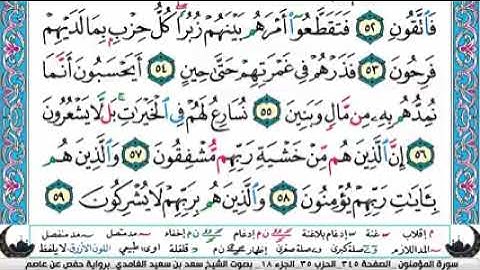 فَٱتَّقُونِ ٥٢ فَتَقَطَّعُوٓا۟ أَمْرَهُم بَيْنَهُمْ زُبُرًا ۖ كُلُّ حِزْبٍۭ بِمَا لَدَيْهِمْ
فَرِحُونَ ٥٣ فَذَرْهُمْ فِى غَمْرَتِهِمْ حَتَّىٰ حِينٍ ٥٤ أَيَحْسَبُونَ أَنَّمَا
نُمِدُّهُم بِهِۦ مِن مَّالٍ وَبَنِينَ ٥٥ نُسَارِعُ لَهُمْ فِى ٱلْخَيْرَٰتِ ۚ بَل لَّا يَشْعُرُونَ
٥٦ إِنَّ ٱلَّذِينَ هُم مِّنْ خَشْيَةِ رَبِّهِم مُّشْفِقُونَ ٥٧ وَٱلَّذِينَ هُم
بِـَٔايَٰتِ رَبِّهِمْ يُؤْمِنُونَ ٥٨ وَٱلَّذِينَ هُم بِرَبِّهِمْ لَا يُشْرِكُونَ ٥٩
م إقلاب غنة إدغام بلاغنة إدغام ن م إخفاء مد متصل مد منفصل
مد اللازم صلة كبرى وصلة صغرى ن م قلقلة طبيعي اللون الأزرق لا يلفظ
سورة المؤمنون . الصفحة ٣٤٥ الحزب ٣٥ الجزء ١٨ . بصوت الشيخ سعد بن سعيد الغامدي . برواية حفص عن عاصم